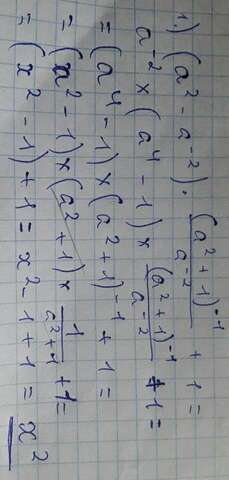 1.) (a² - a⁻²) · (a² + 1)⁻¹ / a⁻² + 1 =
a⁻² × (a⁴ - 1) × (a² + 1)⁻¹ / a⁻² + 1 =
= (a⁴ - 1) × (a² + 1)⁻¹ + 1 =
= (a² - 1) × (a² + 1) × 1 / a² + 1 + 1 =
= (x² - 1) + 1 = x² - 1 + 1 = x²